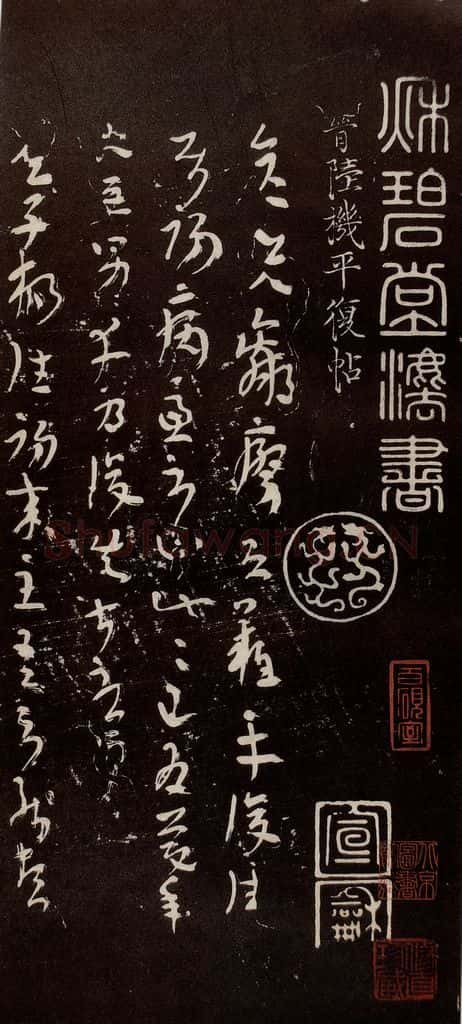 秋碧堂灋書
晉陸機平復帖
彦先羸瘵恐難平復往
屬初病慮不止此〻已為慶承
使唯男幸為復失前憂耳
吳子楊往初來主吾不能盡
宣龢
Shufawang.CN